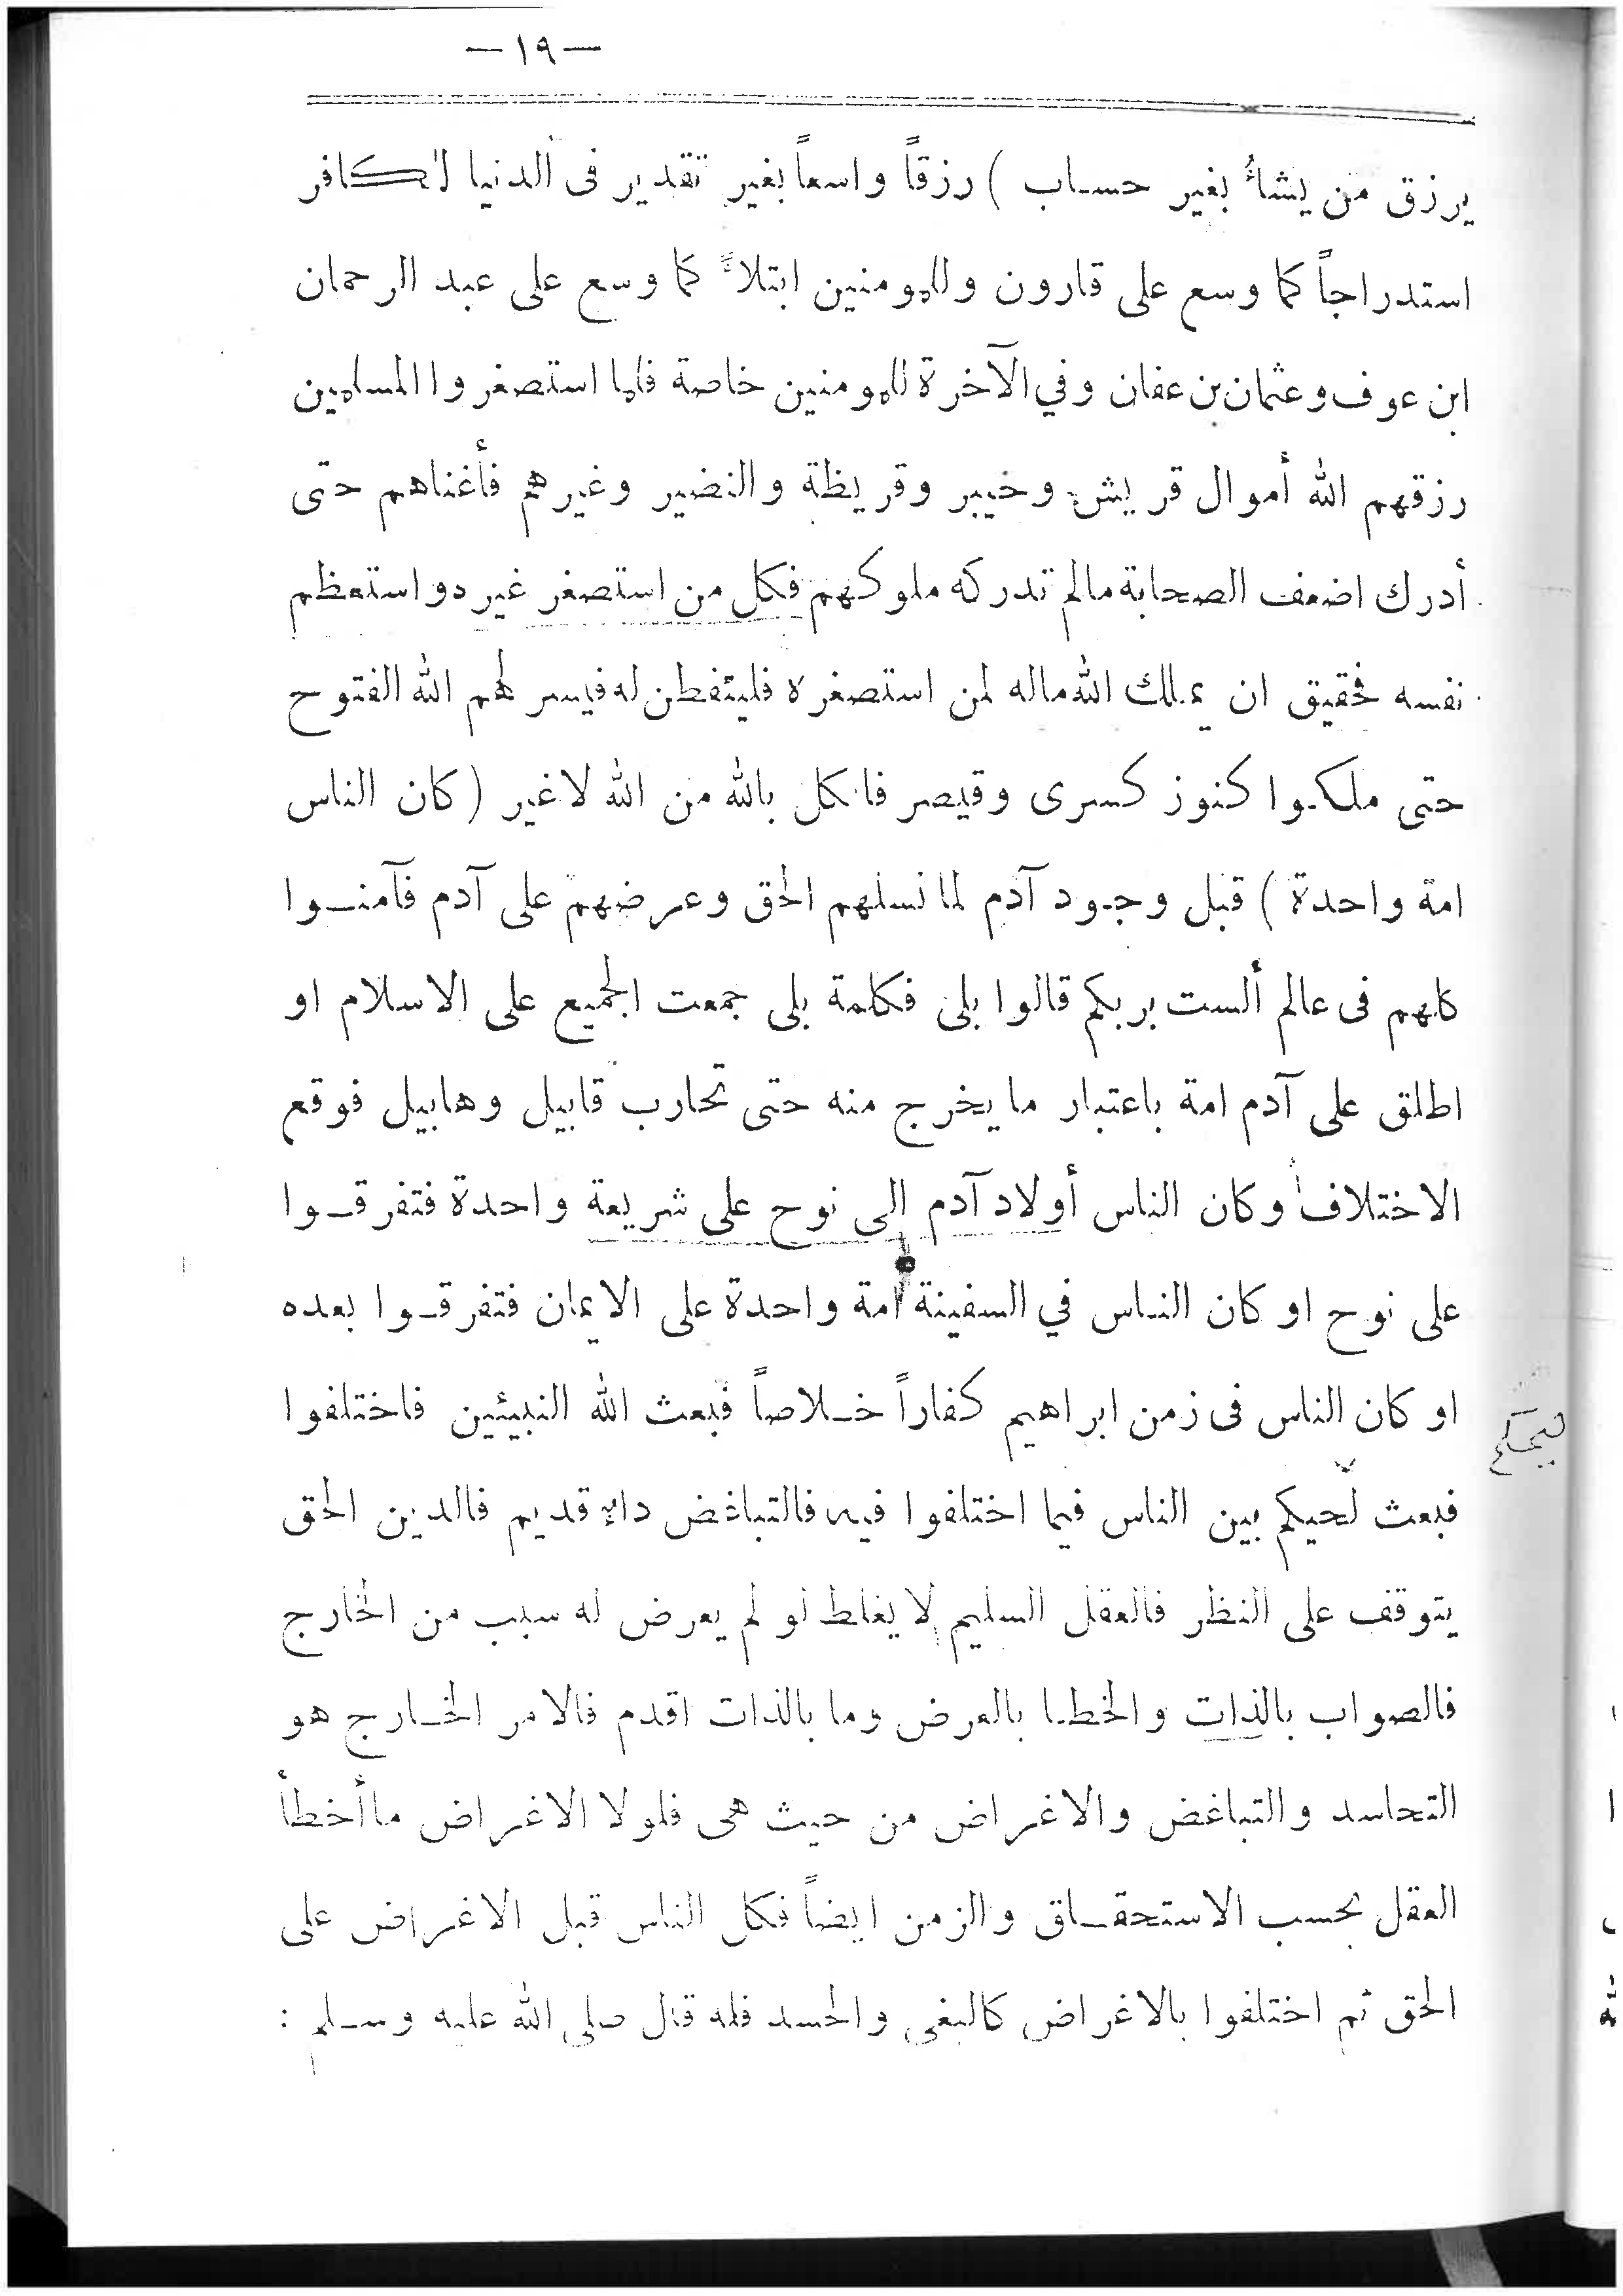 — ١٩ —
يرزق من يشاءُ بغير حساب ) رزقاً واسعاً بغير تقدير فى الدنيا للكافر
استدراجاً كما وسع على قارون وللمومنين ابتلاءً كما وسع على عبد الرحمان
ابن عوف وعثمان بن عفان وفي الآخرة للمومنين خاصة فلما استصغروا المسلمين
رزقهم الله أموال قريش وخيبر وقريظة والنضير وغيرهم فأغناهم حتى
أدرك اضعف الصحابة مالم تدركه ملوكهم فكل من استصغر غيره واستعظم
نفسه فحقيق ان يملك الله ماله لمن استصغره فليتفطن له فيسر لهم الله الفتوح
حتى ملكوا كنوز كسرى وقيصر فالكل بالله من الله لاغير ( كان الناس
امة واحدة ) قبل وجود آدم لما نسلهم الحق وعرضهم على آدم فآمنوا
كلهم فى عالم ألست بربكم قالوا بلى فكلمة بلى جمعت الجميع على الاسلام او
اطلق على آدم امة باعتبار ما يخرج منه حتى تحارب قابيل وهابيل فوقع
الاختلاف وكان الناس أولاد آدم الى نوح على شريعة واحدة فتفرقوا
على نوح او كان الناس في السفينة امة واحدة على الايمان فتفرقوا بعده
او كان الناس فى زمن ابراهيم كفاراً خلاصاً فبعث الله النبيئين فاختلفوا
فبعث لحيكم بين الناس فيما اختلفوا فيه فالتباغض داء قديم فالدين الحق
ليحكم
يتوقف على النظر فالعقل السليم لا يغلط لو لم يعرض له سبب من الخارج
فالصواب بالذات والخطا بالعرض وما بالذات اقدم فالامر الخارج هو
التحاسد والتباغض والاغراض من حيث هى فلولا الاغراض ما أخطأ
العقل بحسب الاستحقاق والزمن ايضاً فكل الناس قبل الاغراض على
الحق ثم اختلفوا بالاغراض كالبغى والحسد فله قال صلى الله عليه وسلم :